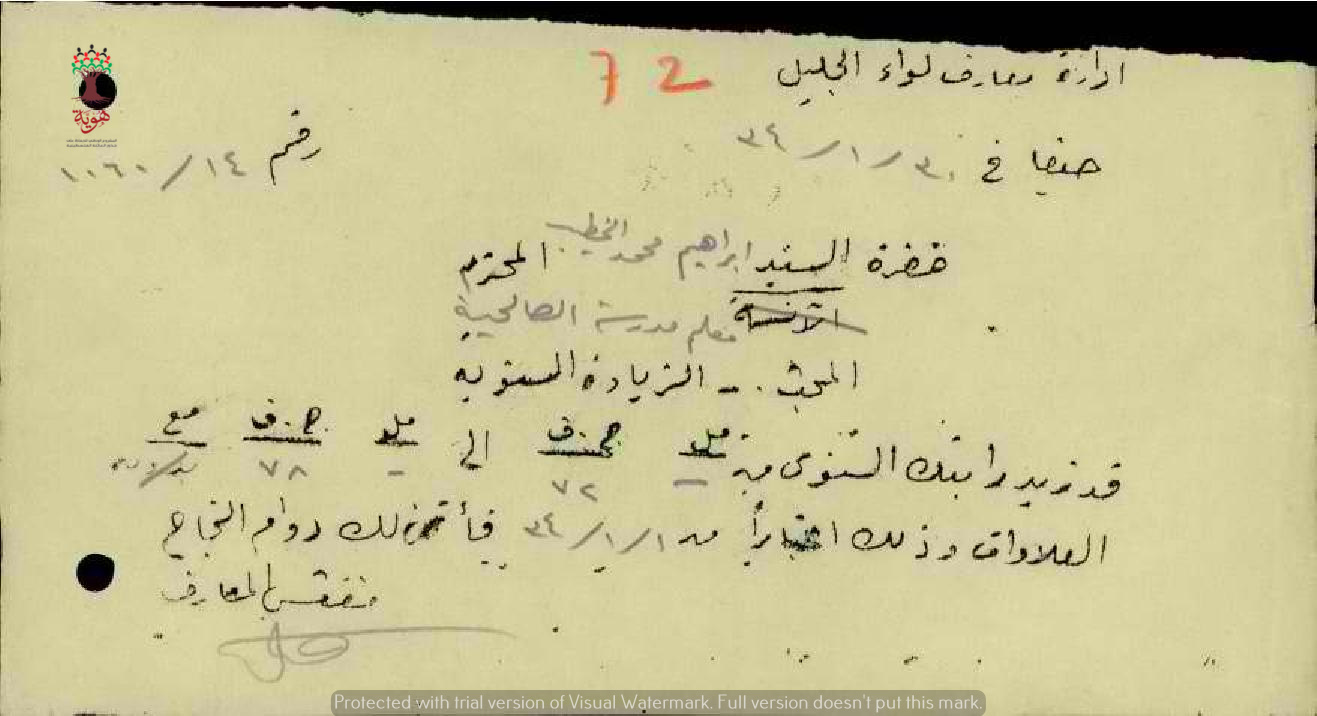 ادارة معارف لواء الجليل
72
حيفا في ٣٠/١/٣٤
رقم ١٤/١٠٦٠
حضرة السيد ابراهيم محمد الخطيب المحترم
الآنسة
معلم مدرسة الصالحية
المبحث .- الزيادة السنوية
قد زيد راتبك السنوي من مل - ج.ف ٧٢ الى مل - ج.ف ٧٨ مع
العلاوات وذلك اعتباراً من ١/١/٣٤ فأتمنى لك دوام النجاح
مفتش المعارف
هوية
Protected with trial version of Visual Watermark. Full version doesn't put this mark.